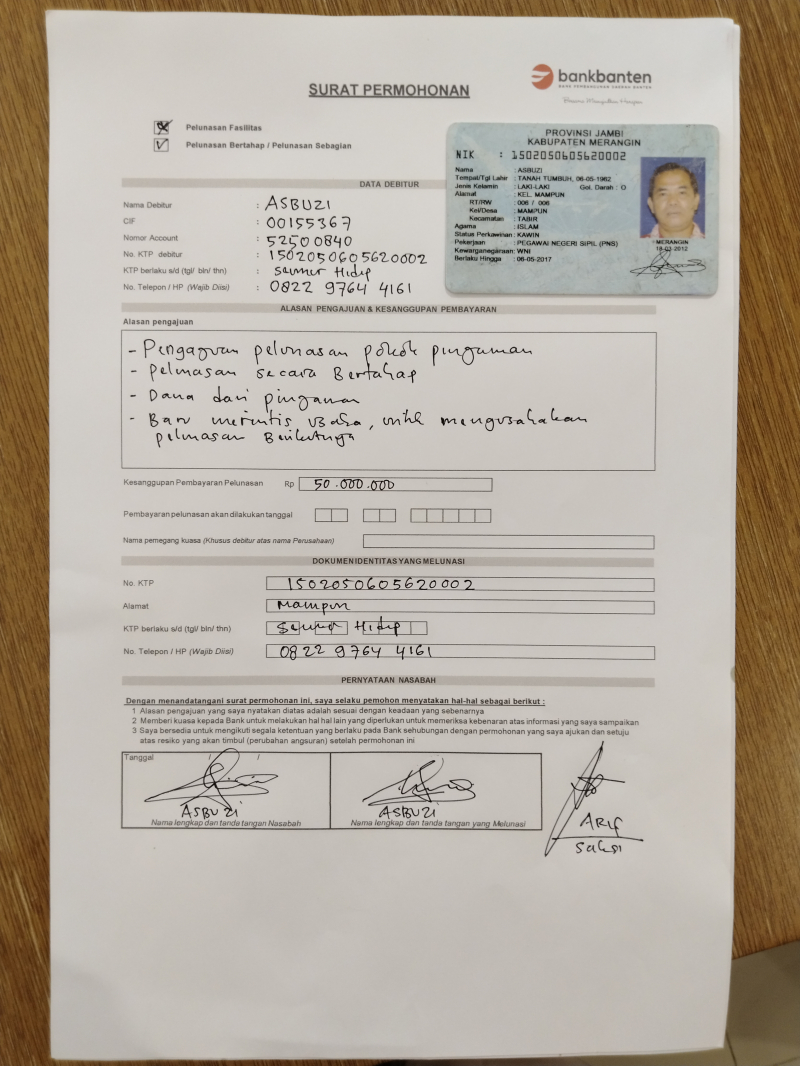 bankbanten
BANK PEMBANGUNAN DAERAH BANTEN
SURAT PERMOHONAN
Pelunasan Fasilitas
Pelunasan Bertahap / Pelunasan Sebagian
PROVINSI JAMBI
KABUPATEN MERANGIN
NIK : 1502050605620002
Nama : ASBUZI
Tempat/Tgl Lahir : TANAH TUMBUH, 06-05-1962
Jenis Kelamin : LAKI-LAKI Gol. Darah : O
Alamat : KEL. MAMPUN
RT/RW : 006 / 006
Kel/Desa : MAMPUN
Kecamatan : TABIR
Agama : ISLAM
Status Perkawinan : KAWIN
Pekerjaan : PEGAWAI NEGERI SIPIL (PNS)
Kewarganegaraan: WNI
Berlaku Hingga : 06-05-2017
MERANGIN
18-03-2012
DATA DEBITUR
Nama Debitur : ASBUZI
CIF : 00155367
Nomor Account : 52500840
No. KTP debitur : 1502050605620002
KTP berlaku s/d (tgl/ bln/ thn) : Seumur Hidup
No. Telepon / HP (Wajib Diisi) : 0822 9764 4161
ALASAN PENGAJUAN & KESANGGUPAN PEMBAYARAN
Alasan pengajuan
- Pengajuan pelunasan pokok pinjaman
- pelunasan secara Bertahap
- Dana dari pinjaman
- Baru merintis usaha, untuk mengusahakan
pelunasan Berikutnya
Kesanggupan Pembayaran Pelunasan Rp 50.000.000
Pembayaran pelunasan akan dilakukan tanggal
Nama pemegang kuasa (Khusus debitur atas nama Perusahaan)
DOKUMEN IDENTITAS YANG MELUNASI
No. KTP 1502050605620002
Alamat Mampun
KTP berlaku s/d (tgl/ bln/ thn) Seumur Hidup
No. Telepon / HP (Wajib Diisi) 0822 9764 4161
PERNYATAAN NASABAH
Dengan menandatangani surat permohonan ini, saya selaku pemohon menyatakan hal-hal sebagai berikut :
1 Alasan pengajuan yang saya nyatakan diatas adalah sesuai dengan keadaan yang sebenarnya
2 Memberi kuasa kepada Bank untuk melakukan hal hal lain yang diperlukan untuk memeriksa kebenaran atas informasi yang saya sampaikan
3 Saya bersedia untuk mengikuti segala ketentuan yang berlaku pada Bank sehubungan dengan permohonan yang saya ajukan dan setuju
atas resiko yang akan timbul (perubahan angsuran) setelah permohonan ini
Tanggal / /
ASBUZI ASBUZI ARIF
Nama lengkap dan tanda tangan Nasabah Nama lengkap dan tanda tangan yang Melunasi Saksi